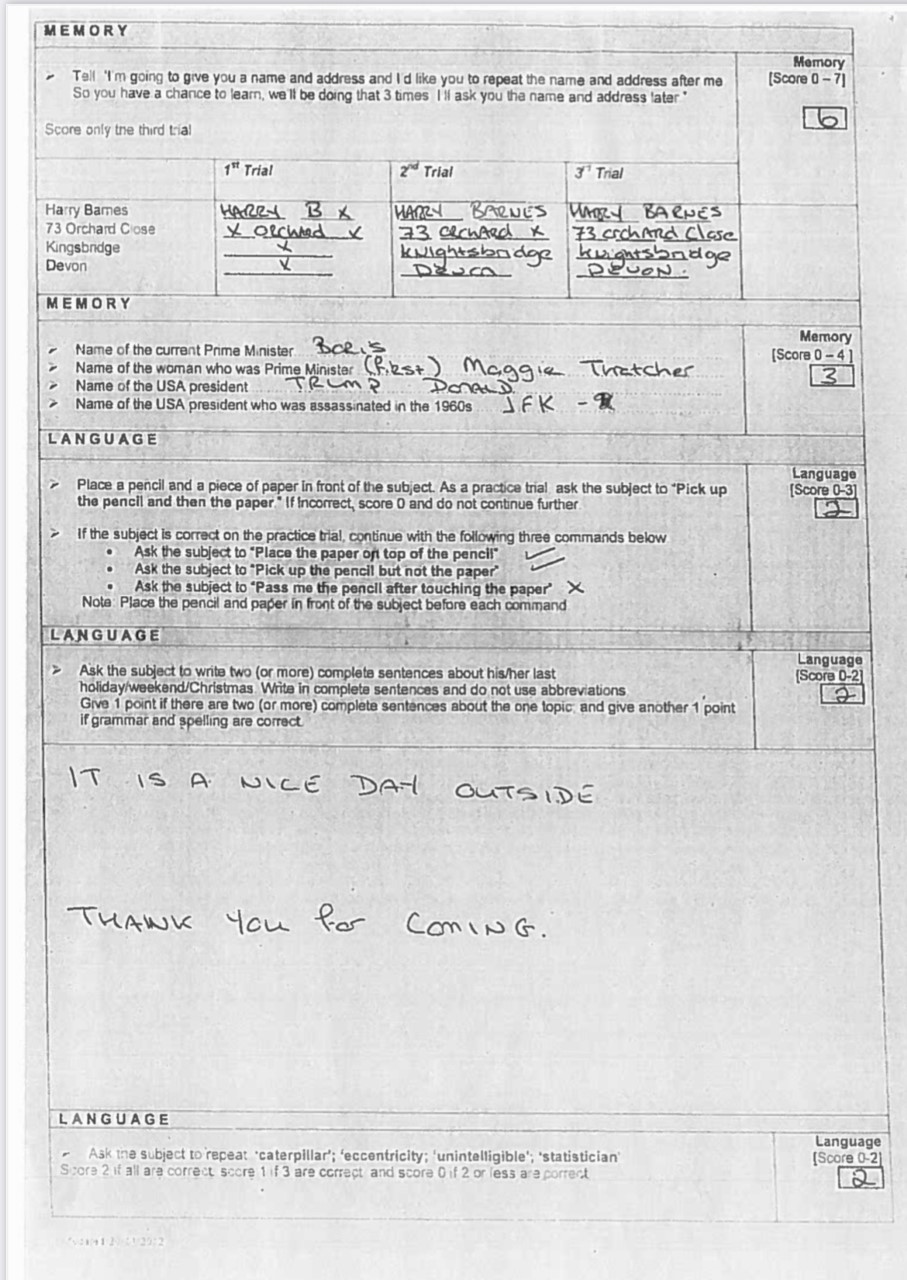 MEMORY
Tell "I'm going to give you a name and address and I'd like you to repeat the name and address after me
So you have a chance to learn, we'll be doing that 3 times I'll ask you the name and address later"
Score only the third trial
Memory
[Score 0 – 7]
6
1st Trial 2nd Trial 3rd Trial
Harry Barnes HARRY B X HARRY BARNES HARRY BARNES
73 Orchard Close X Orchard X 73 Orchard X 73 orchard Close
Kingsbridge X Knightsbridge Knightsbridge
Devon X Devon DEVON.
MEMORY
Name of the current Prime Minister Boris
Name of the woman who was Prime Minister (first) Maggie Thatcher
Name of the USA president TRUMP DONALD
Name of the USA president who was assassinated in the 1960s JFK -
Memory
[Score 0 – 4]
3
LANGUAGE
Place a pencil and a piece of paper in front of the subject. As a practice trial, ask the subject to "Pick up
the pencil and then the paper." If incorrect, score 0 and do not continue further
If the subject is correct on the practice trial, continue with the following three commands below
• Ask the subject to "Place the paper on top of the pencil" ✓
• Ask the subject to "Pick up the pencil but not the paper" ✓
• Ask the subject to "Pass me the pencil after touching the paper" X
Note: Place the pencil and paper in front of the subject before each command
Language
[Score 0-3]
2
LANGUAGE
Ask the subject to write two (or more) complete sentences about his/her last
holiday/weekend/Christmas. Write in complete sentences and do not use abbreviations.
Give 1 point if there are two (or more) complete sentences about the one topic; and give another 1 point
if grammar and spelling are correct.
Language
[Score 0-2]
2
IT IS A NICE DAY OUTSIDE
THANK YOU for COMING.
LANGUAGE
Ask the subject to repeat 'caterpillar'; 'eccentricity; 'unintelligible'; 'statistician'
Score 2 if all are correct, score 1 if 3 are correct, and score 0 if 2 or less are correct
Language
[Score 0-2]
2